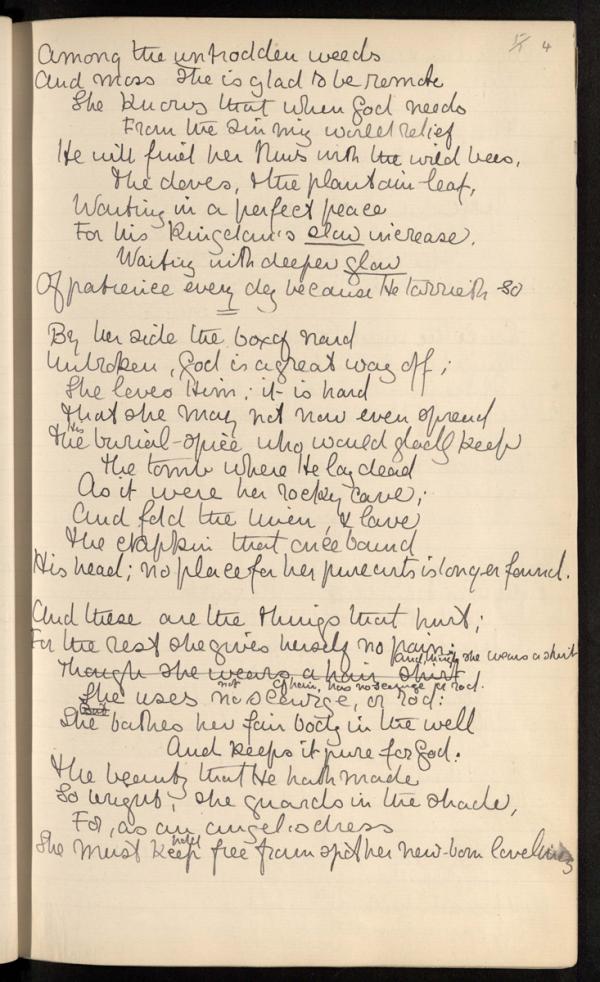 4
Among the untrodden weeds
And moss she is glad to be remote
She knows that when God needs
From the sinning world relief
He will find her thus with the wild bees,
The doves, & the plantain-leaf,
Waiting in a perfect peace
For his Kingdom's slow increase.
Waiting with deeper glow
Of patience every day because He tarrieth so
By her side the box of nard
Unbroken, God is a great way off;
She loves Him; it is hard
That she may not now even spread
His
The burial-spice who would gladly keep
The tomb where He lay dead
As it were her rocky cave;
And fold the linen, & lave
The napkin that once bound
His head; no place for her pure arts is longer found.
And these are the things that hurt;
For the rest she gives herself no pain:
she wears a shirt
Though she wears a hair shirt
not of hair, has no scourge or rod.
She uses no scourge, or rod:
But
She bathes her fair body in the well
And keeps it pure for God:
The beauty that He hath made
So bright, she guards in the shade,
For, as an angel's dress
hold
She must keep free from spot her new-born loveliness